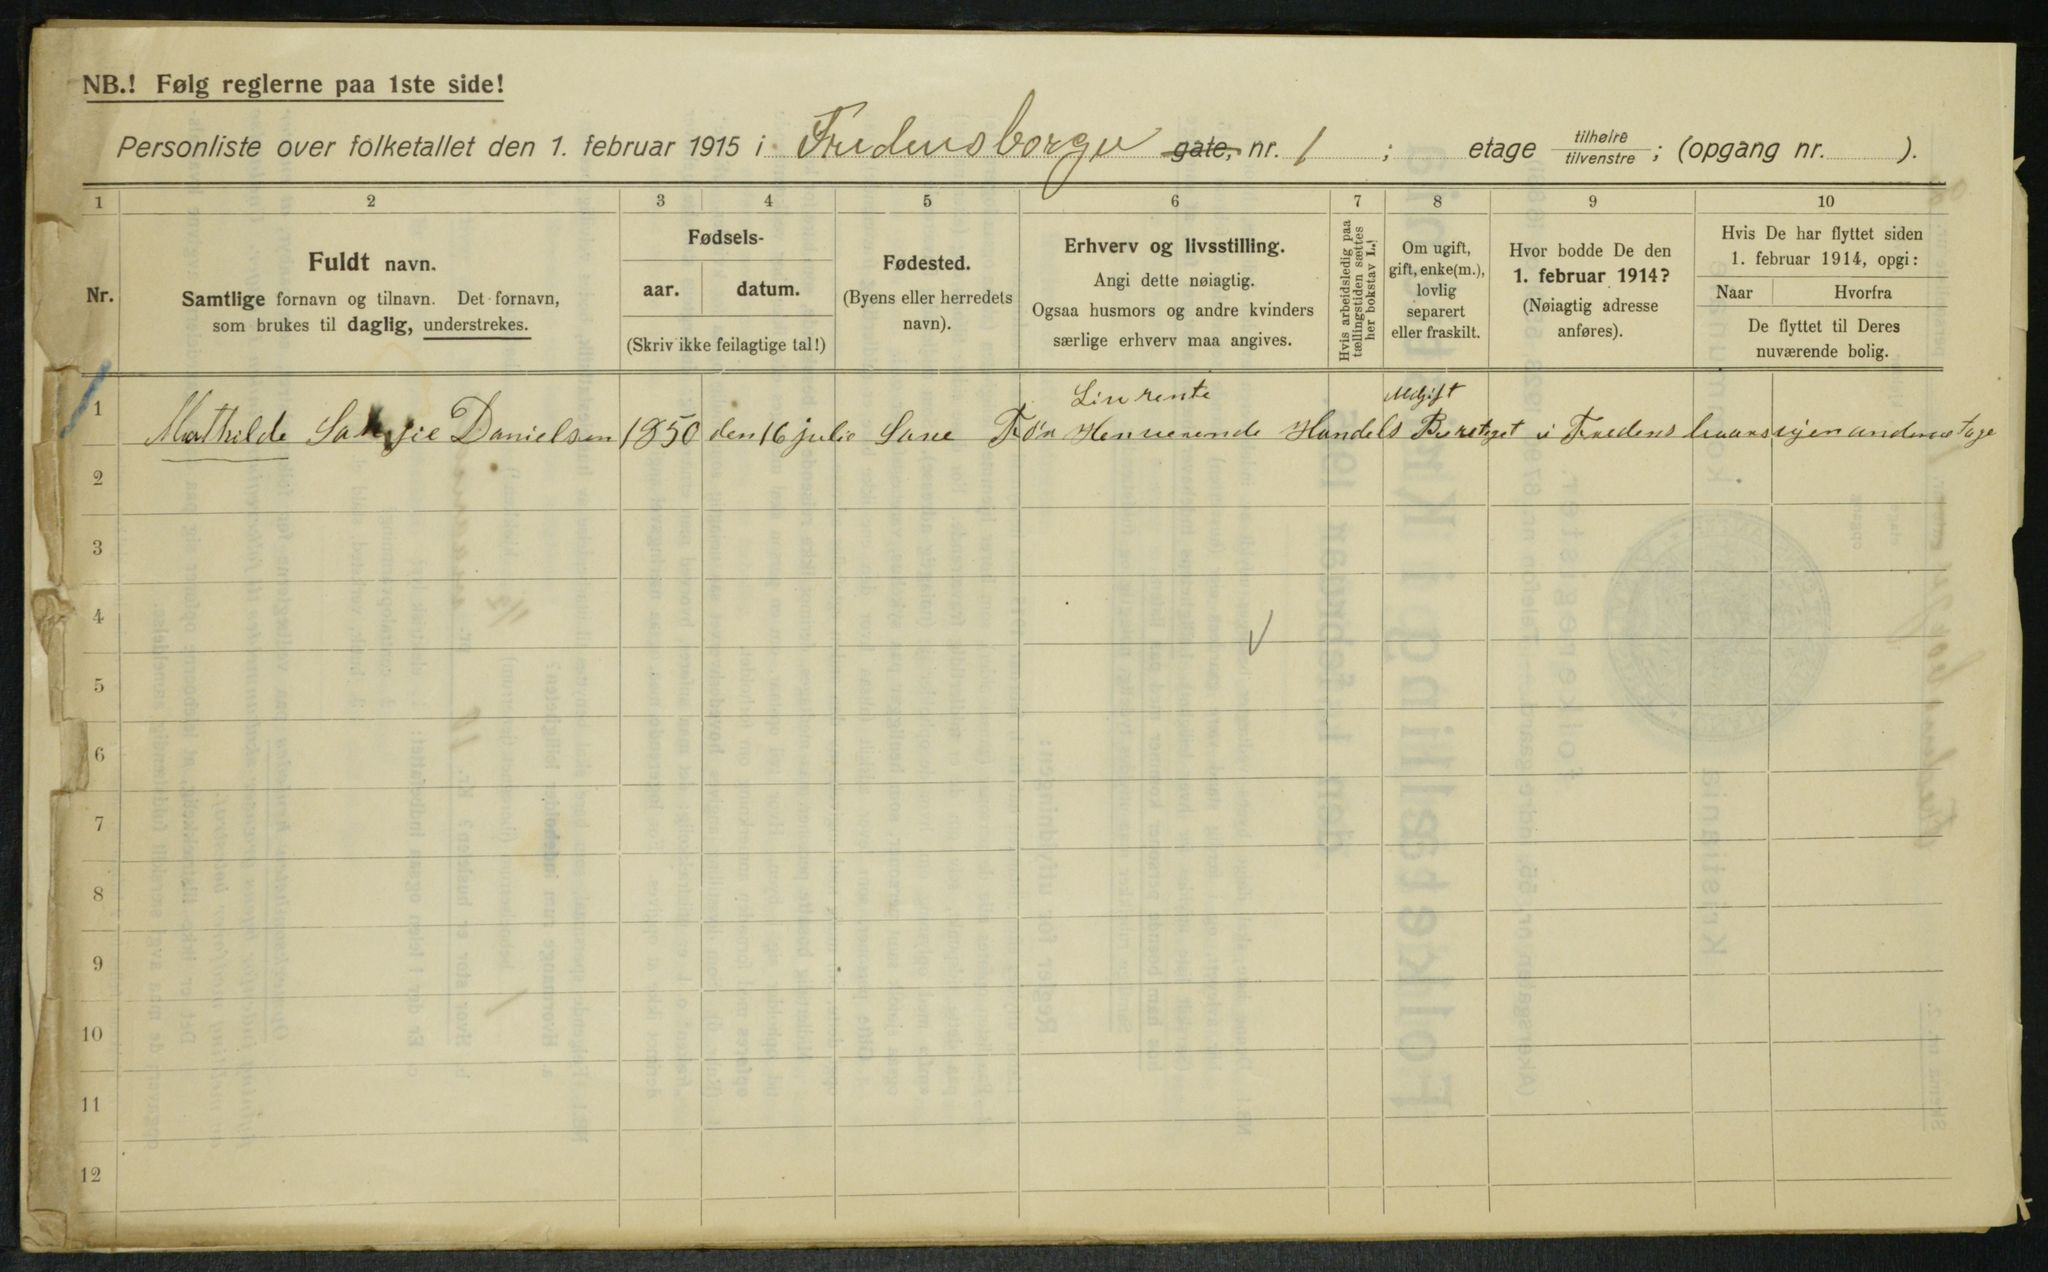 NB.! Følg reglerne paa 1ste side!
Personliste over folketallet den 1. februar 1915 i Fredensborgv gate, nr. 1 ; etage tilhøire tilvenstre ; (opgang nr. ).
1 2 3 4 5 6 7 8 9 10
Nr.
Fuldt navn.
Samtlige fornavn og tilnavn. Det fornavn,
som brukes til daglig, understrekes.
Fødsels-
aar. datum.
(Skriv ikke feilagtige tal!)
Fødested.
(Byens eller herredets
navn).
Erhverv og livsstilling.
Angi dette nøiagtig.
Ogsaa husmors og andre kvinders
særlige erhverv maa angives.
Hvis arbeidsledig paa
tællingstiden sættes
her bokstav L.!
Om ugift,
gift, enke(m.),
lovlig
separert
eller fraskilt.
Hvor bodde De den
1. februar 1914?
(Nøiagtig adresse
anføres).
Hvis De har flyttet siden
1. februar 1914, opgi:
Naar Hvorfra
De flyttet til Deres
nuværende bolig.
Livrente Ugift
1 Mathilde Danielsen 1850 den 16 julie Før Henverende Handels i
2
3
4
5
6
7
8
9
10
11
12